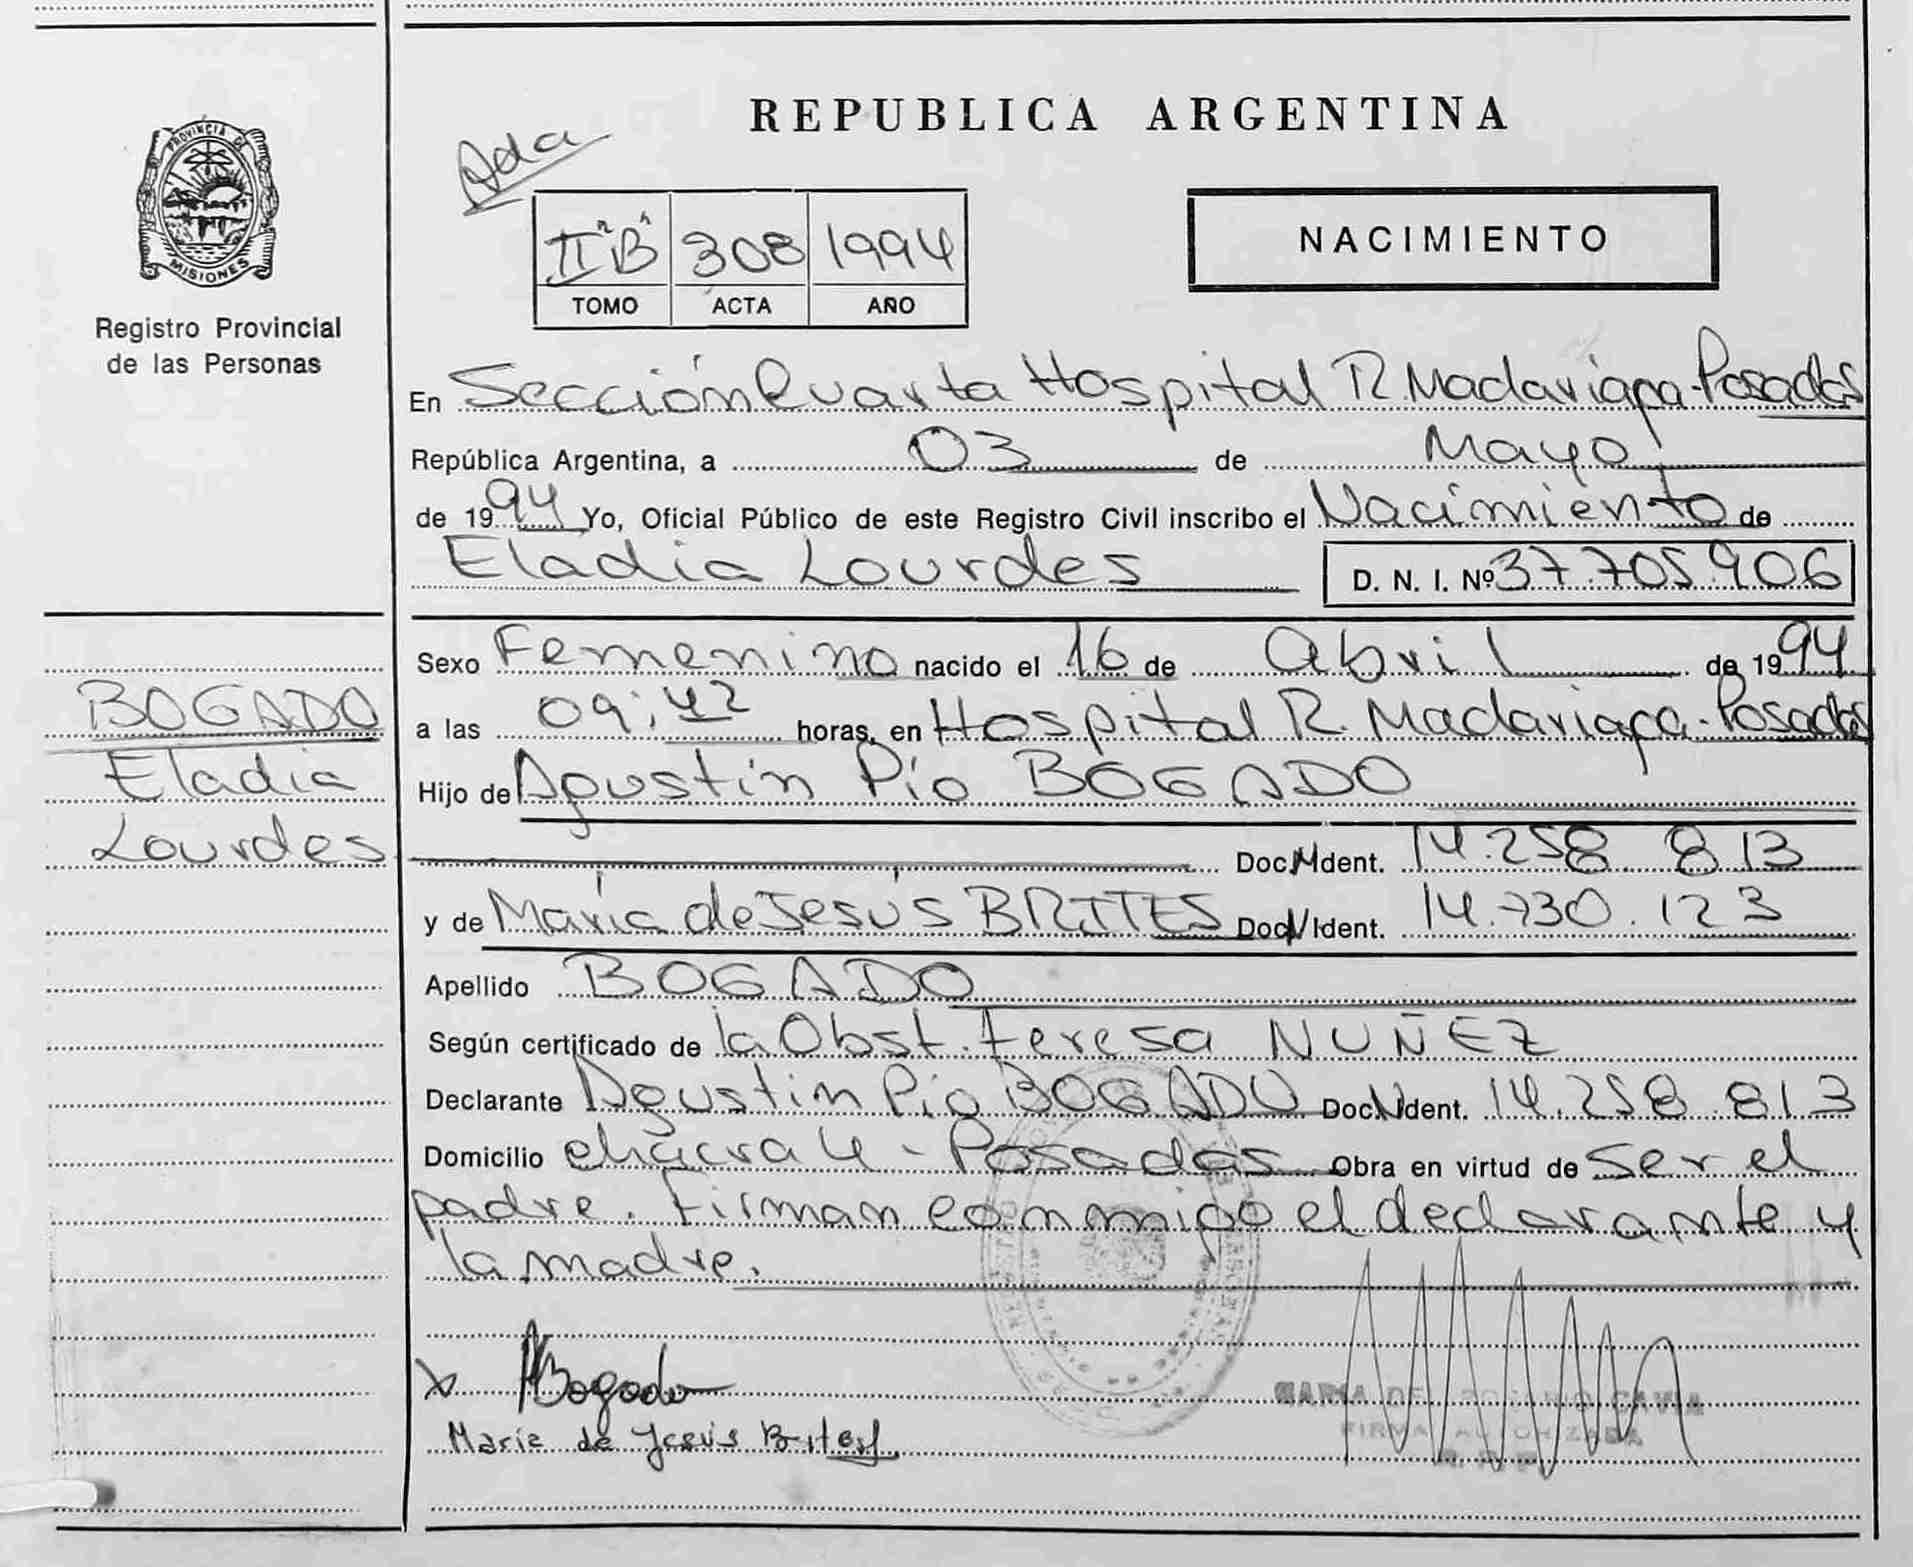 REPUBLICA ARGENTINA
Ada
PROVINCIA DE
MISIONES
Registro Provincial
de las Personas
II "B" 308 1994
TOMO ACTA AÑO
NACIMIENTO
En Sección Cuarta Hospital R. Madariaga - Posadas
República Argentina, a 03 de Mayo
de 1994 Yo, Oficial Público de este Registro Civil inscribo el Nacimiento de
Eladia Lourdes D. N. I. Nº 37.705.906
BOGADO
Eladia
Lourdes
Sexo Femenino nacido el 16 de Abril de 1994
a las 09:42 horas, en Hospital R. Madariaga - Posadas
Hijo de Agustín Pío BOGADO
Doc. Ident. 14.258.813
y de María de Jesús BRITES Doc. Ident. 14.730.123
Apellido BOGADO
Según certificado de la Obst. Teresa NUÑEZ
Declarante Agustín Pío BOGADO Doc. Ident. 14.258.813
Domicilio chacra 4 - Posadas Obra en virtud de ser el
padre. Firman conmigo el declarante y
la madre.
x ABogado
Maria de Jesús Brites
MARIA DEL ROSARIO CAVIA
FIRMA AUTORIZADA
R.P.P.